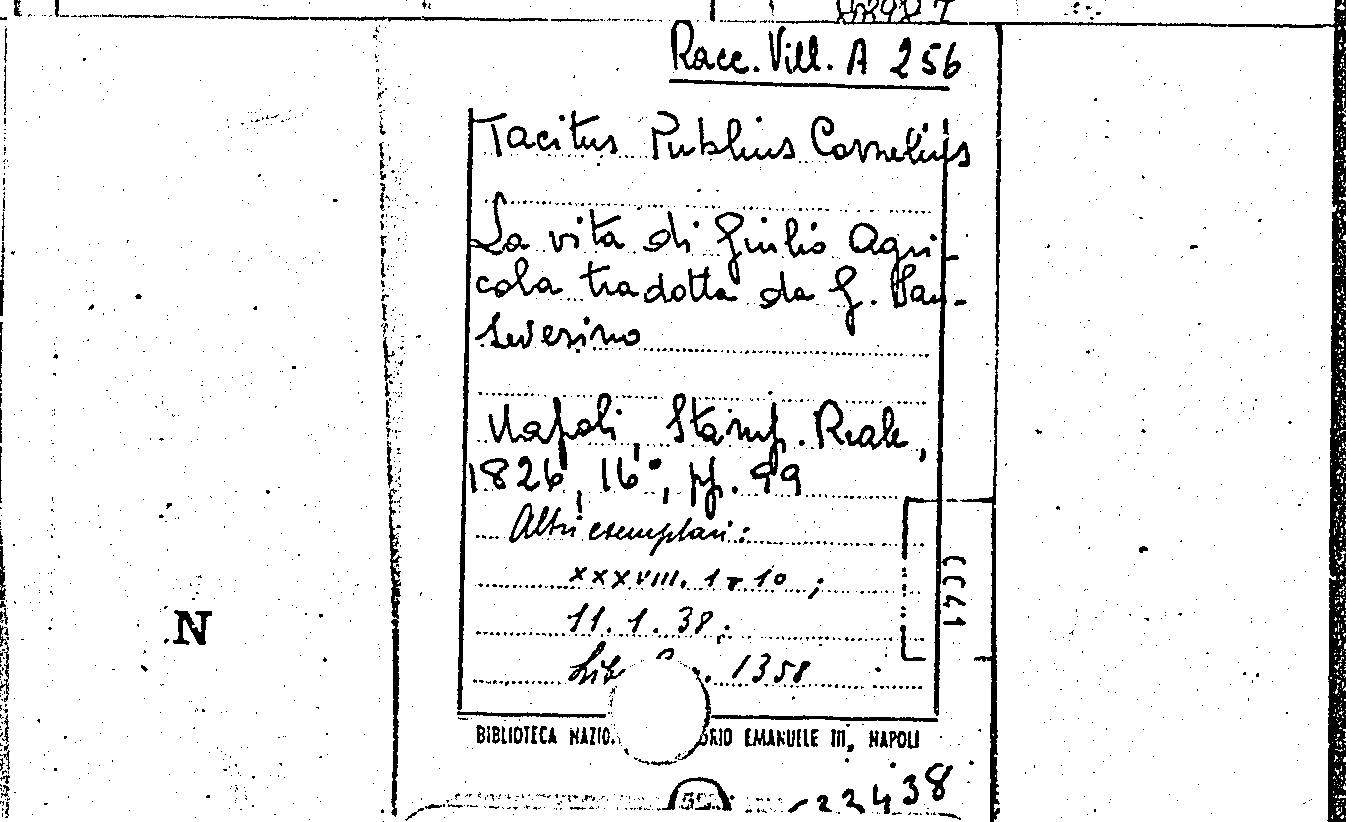 Racc. Vill. A 256
Tacitus Publius Cornelius
La vita di Giulio Agri-
cola tradotta da G. San-
severino
Napoli, Stamp. Reale,
1826, 16°, pp. 99
Altri esemplari:
XXXVIII. 1 10;
11. 1. 38;
1358
BIBLIOTECA EMANUELE III, NAPOLI
N